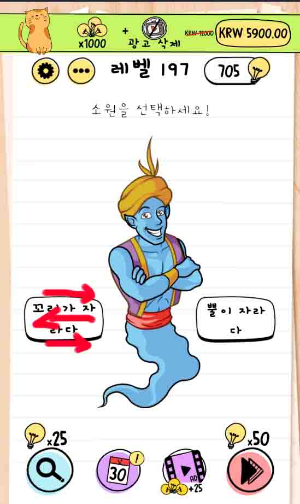 x1000
+
광고 삭제
KRW 12000
KRW 5900.00
레벨 197
705
소원을 선택하세요!
꼬리가 자
라다
뿔이 자라
다
x25
x50
30
!
AD
+25